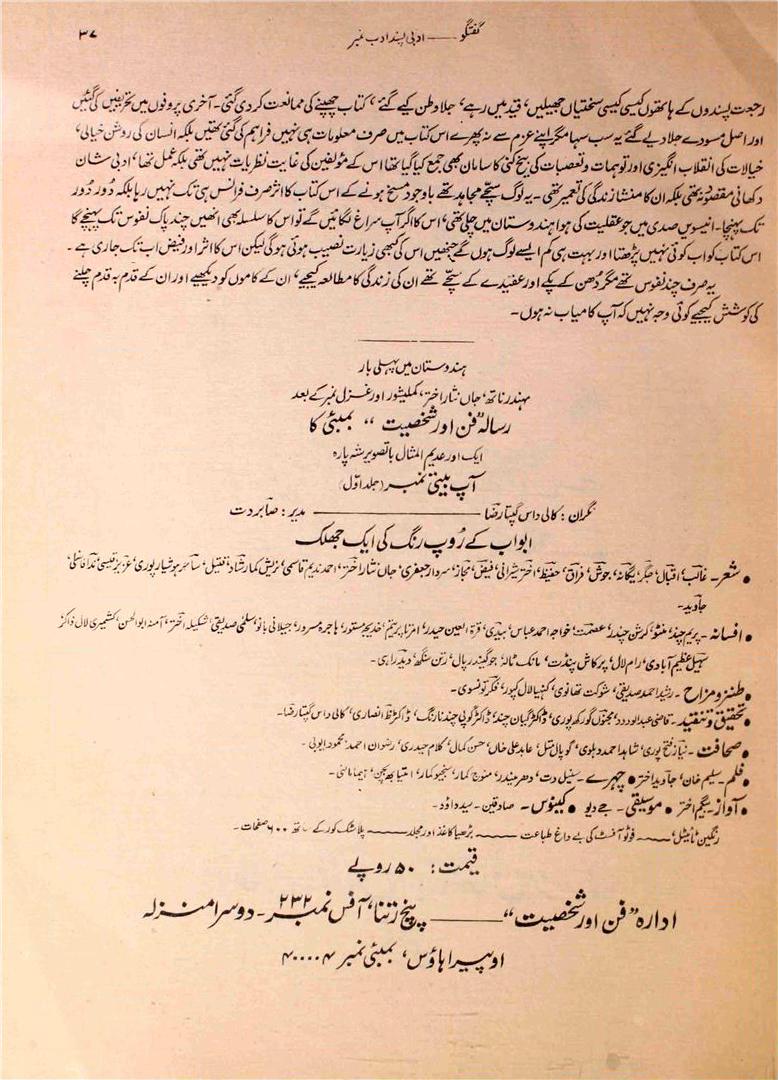 گفتگو —— ادبی پسند ادب نمبر
۳۷
رجعت پسندوں کے ہاتھوں کیسی کیسی سختیاں جھیلیں، قید میں رہے، جلا وطن کیے گئے، کتاب چھپنے کی ممانعت کر دی گئی۔ آخری پروفوں میں تحریفیں کی گئیں
اور اصل مسودے جلا دیے گئے یہ سب سہا مگر اپنے عزم سے نہ پھرے اس کتاب میں صرف معلومات ہی نہیں فراہم کی گئی تھیں بلکہ انسان کی روشن خیالی،
خیالات کی انقلاب انگیزی اور توہمات و تعصبات کی بیخ کنی کا سامان بھی جمع کیا گیا تھا اس کے مؤلفین کی غایت نظریات نہیں تھی بلکہ عمل تھا، ادبی شان
دکھانی مقصود نہ تھی بلکہ ان کا منشا زندگی کی تعمیر تھی۔ یہ لوگ سچے مجاہد تھے باوجود مسخ ہونے کے اس کتاب کا اثر صرف فرانس ہی تک نہیں رہا بلکہ دور دور
تک پہنچا۔ انیسویں صدی میں جو عقلیت کی ہوا ہندوستان میں چلی تھی، اس کا اگر آپ سراغ لگائیں گے تو اس کا سلسلہ بھی انھیں چند پاک نفوس تک پہنچے گا
اس کتاب کو اب کوئی نہیں پڑھتا اور بہت ہی کم ایسے لوگ ہوں گے جنھیں اس کی کبھی زیارت نصیب ہوئی ہو گی لیکن اس کا اثر اور فیض اب تک جاری ہے۔
یہ صرف چند نفوس تھے مگر دُھن کے پکے اور عقیدے کے سچے تھے ان کی زندگی کا مطالعہ کیجیے، ان کے کاموں کو دیکھیے اور ان کے قدم بہ قدم چلنے
کی کوشش کیجیے کوئی وجہ نہیں کہ آپ کامیاب نہ ہوں۔
ہندوستان میں پہلی بار
مہندر ناتھ، جاں نثار اختر، کملیشور اور غزل نمبر کے بعد
رسالہ "فن اور شخصیت" بمبئی کا
ایک اور عدیم المثال با تصویر شہ پارہ
آپ بیتی نمبر (جلد اوّل)
نگران: کالی داس گپتا رضا —— مدیر: صابر دت
ابواب کے رُوپ رنگ کی ایک جھلک
• شعر۔ غالب، اقبال، جگر، یگانہ، جوش، فراق، حفیظ، اختر شیرانی، فیض، مجاز، سردار جعفری، جاں نثار اختر، احمد ندیم قاسمی، نریش کمار شاد، قتیل، ساحر ہوشیارپوری، عزیز قیسی، ندا فاضلی،
جاوید۔
• افسانہ۔ پریم چند، منٹو، کرشن چندر، عصمت، خواجہ احمد عباس، بیدی، قرۃ العین حیدر، امرتا پریتم، خدیجہ مستور، ہاجرہ مسرور، جیلانی بانو، سلمیٰ صدیقی، شکیلہ اختر، آمنہ ابوالحسن، کشمیری لال ذاکر
سہیل عظیم آبادی، رام لال، پرکاش پنڈت، مانک ٹالہ، جوگیندر پال، رتن سنگھ، دیدر اہی۔
• طنز و مزاح۔ رشید احمد صدیقی، شوکت تھانوی، کنہیا لال کپور، فکر تونسوی۔
• تحقیق و تنقید۔ قاضی عبدالودود، مجنوں گورکھپوری، ڈاکٹر گیان چند، ڈاکٹر گوپی چند نارنگ، ڈاکٹر ظ انصاری، کالی داس گپتا رضا۔
• صحافت۔ نیاز فتح پوری، شاہد احمد دہلوی، گوپال متل، عابد علی خاں، حسن کمال، کلام حیدری، رضوان احمد، محمود ایوبی۔
• فلم۔ سلیم خان، جاوید اختر • چہرے۔ سنیل دت، دھرمیندر، منوج کمار، سنجیو کمار، امیتابھ بچن، ہیما مالنی۔
• آواز۔ بیگم اختر • موسیقی۔ جے دیو • کینوس۔ صادقین۔ سیدہ داؤد۔
رنگین ٹائیٹل، —— فوٹو آفسٹ کی بے داغ طباعت —— بڑھیا کاغذ اور مجلد —— پلاسٹک کور کے ساتھ ۶۰۰ صفحات۔
قیمت: ۵۰ روپے
ادارہ "فن اور شخصیت" —— پنچ رتنا، آفس نمبر ۲۳۲۔ دوسرا منزلہ
اوپیرا ہاؤس، بمبئی نمبر ۴۰۰۰۰۴